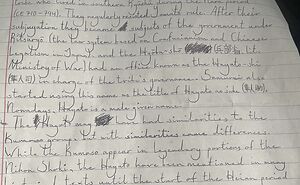 tribe who lived in southern Kyushu during the Nara period
(ca 710-794). They regularly resisted Yamato rule. After their
subjugation they became subjects of the government under
Ritsuryō (the law system based on Confucianism and Chinese
Legalism in Japan) and the Hyobu-shō (兵部省 lit.
Ministry of War) had an office known as the Hayato-shi
(隼人司) in charge of the tribe's governance. Samurai also
started using this name as the title of Hayato no suke (隼人助).
Nowadays, Hayato is a male given name.
The Hayato may have had similarities to the
Kumaso group. Yet with similarities came differences.
While the Kumaso appear in legendary portions of the
Nihon Shoki, the Hayato have been mentioned in many
texts until the start of the Heian period